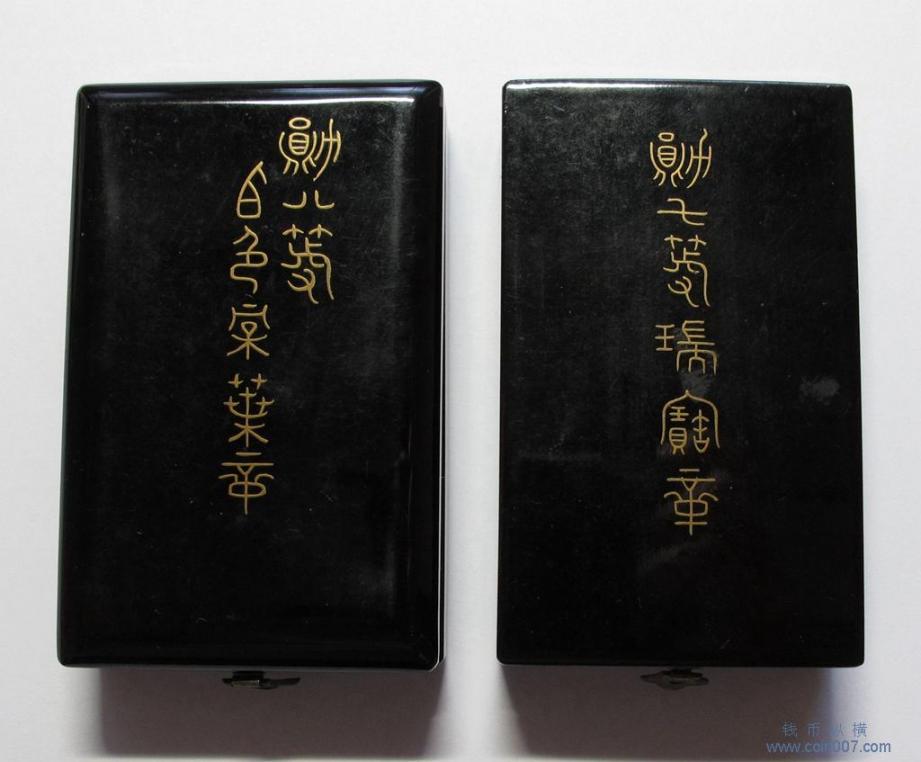 勛八等
白色桐葉章
勛七等瑞寶章
钱币纵横
www.coin007.com